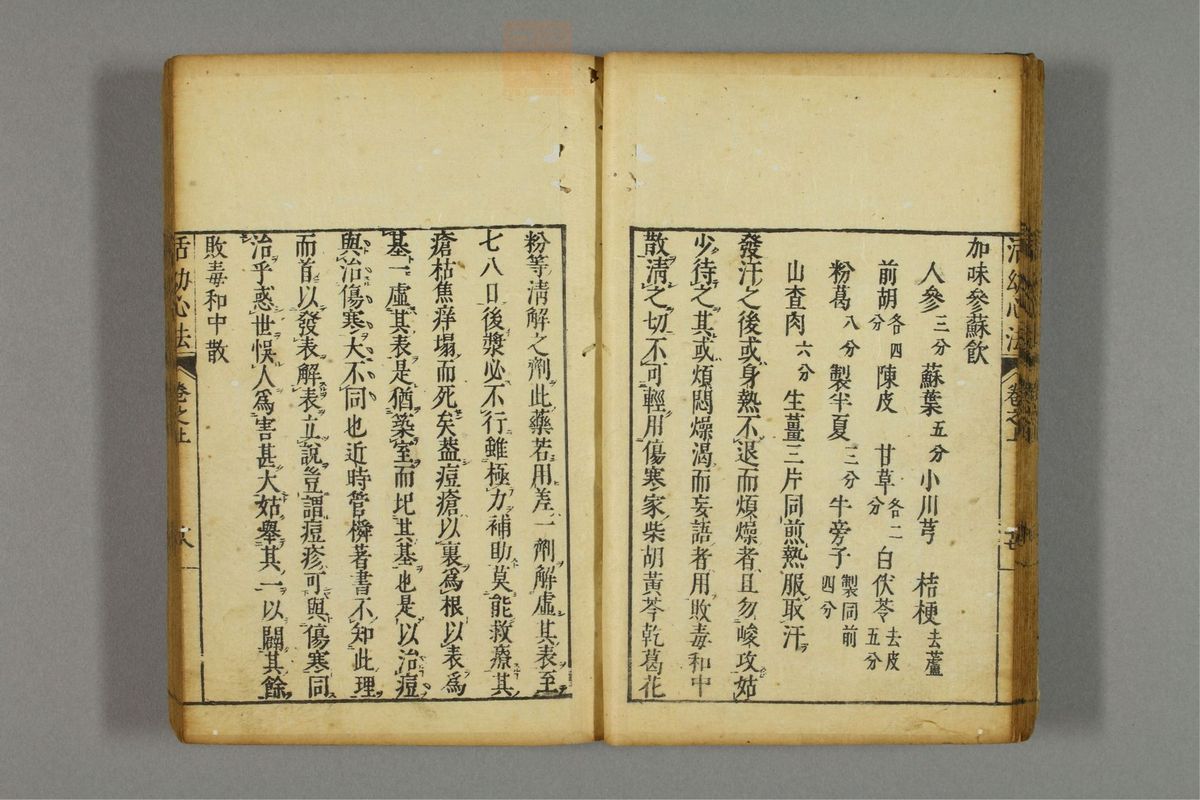 加味參蘇飲
人參三分 蘇葉五分 小川芎 桔梗去蘆
前胡各四分 陳皮 甘草各二分 白伏苓去皮五分
粉葛八分 製半夏三分 牛旁子製同前四分
山查肉六分 生薑三片同煎熱服取汗
發汗之後或身熱不退而煩燥者且勿峻攻姑
少待之其或煩悶燥渴而妄語者用敗毒和中
散淸之切不可輕用傷寒家柴胡黃芩乾葛花
粉等淸解之劑此藥若用差一劑解虛其表至
七八日後漿必不行雖極力補助莫能救療其
瘡枯焦痒塌而死矣蓋痘瘡以裏爲根以表爲
基一虛其表是猶築室而圯其基也是以治痘
與治傷寒大不同也近時管橓著書不知此理
而首以發表解表立說豈謂痘疹可與傷寒同
治乎惑世悞人爲害甚大姑舉其一以闢其餘
敗毒和中散
活幼心法 卷之上 八